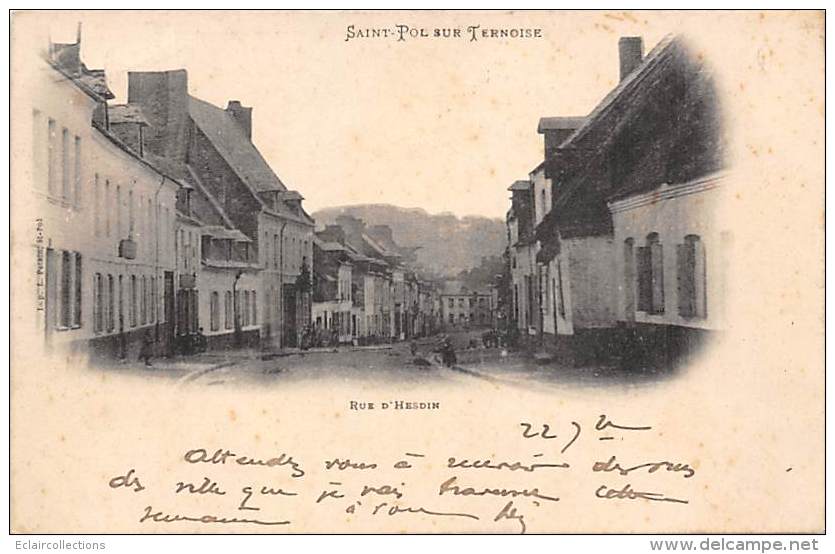 SAINT-POL SUR TERNOISE
Imp. L. Petit St-Pol
RUE D'HESDIN
22 7
Attendez vous à recevoir des vues
de ville que je vais traverser cette
semaine à
Eclaircollections
www.delcampe.net